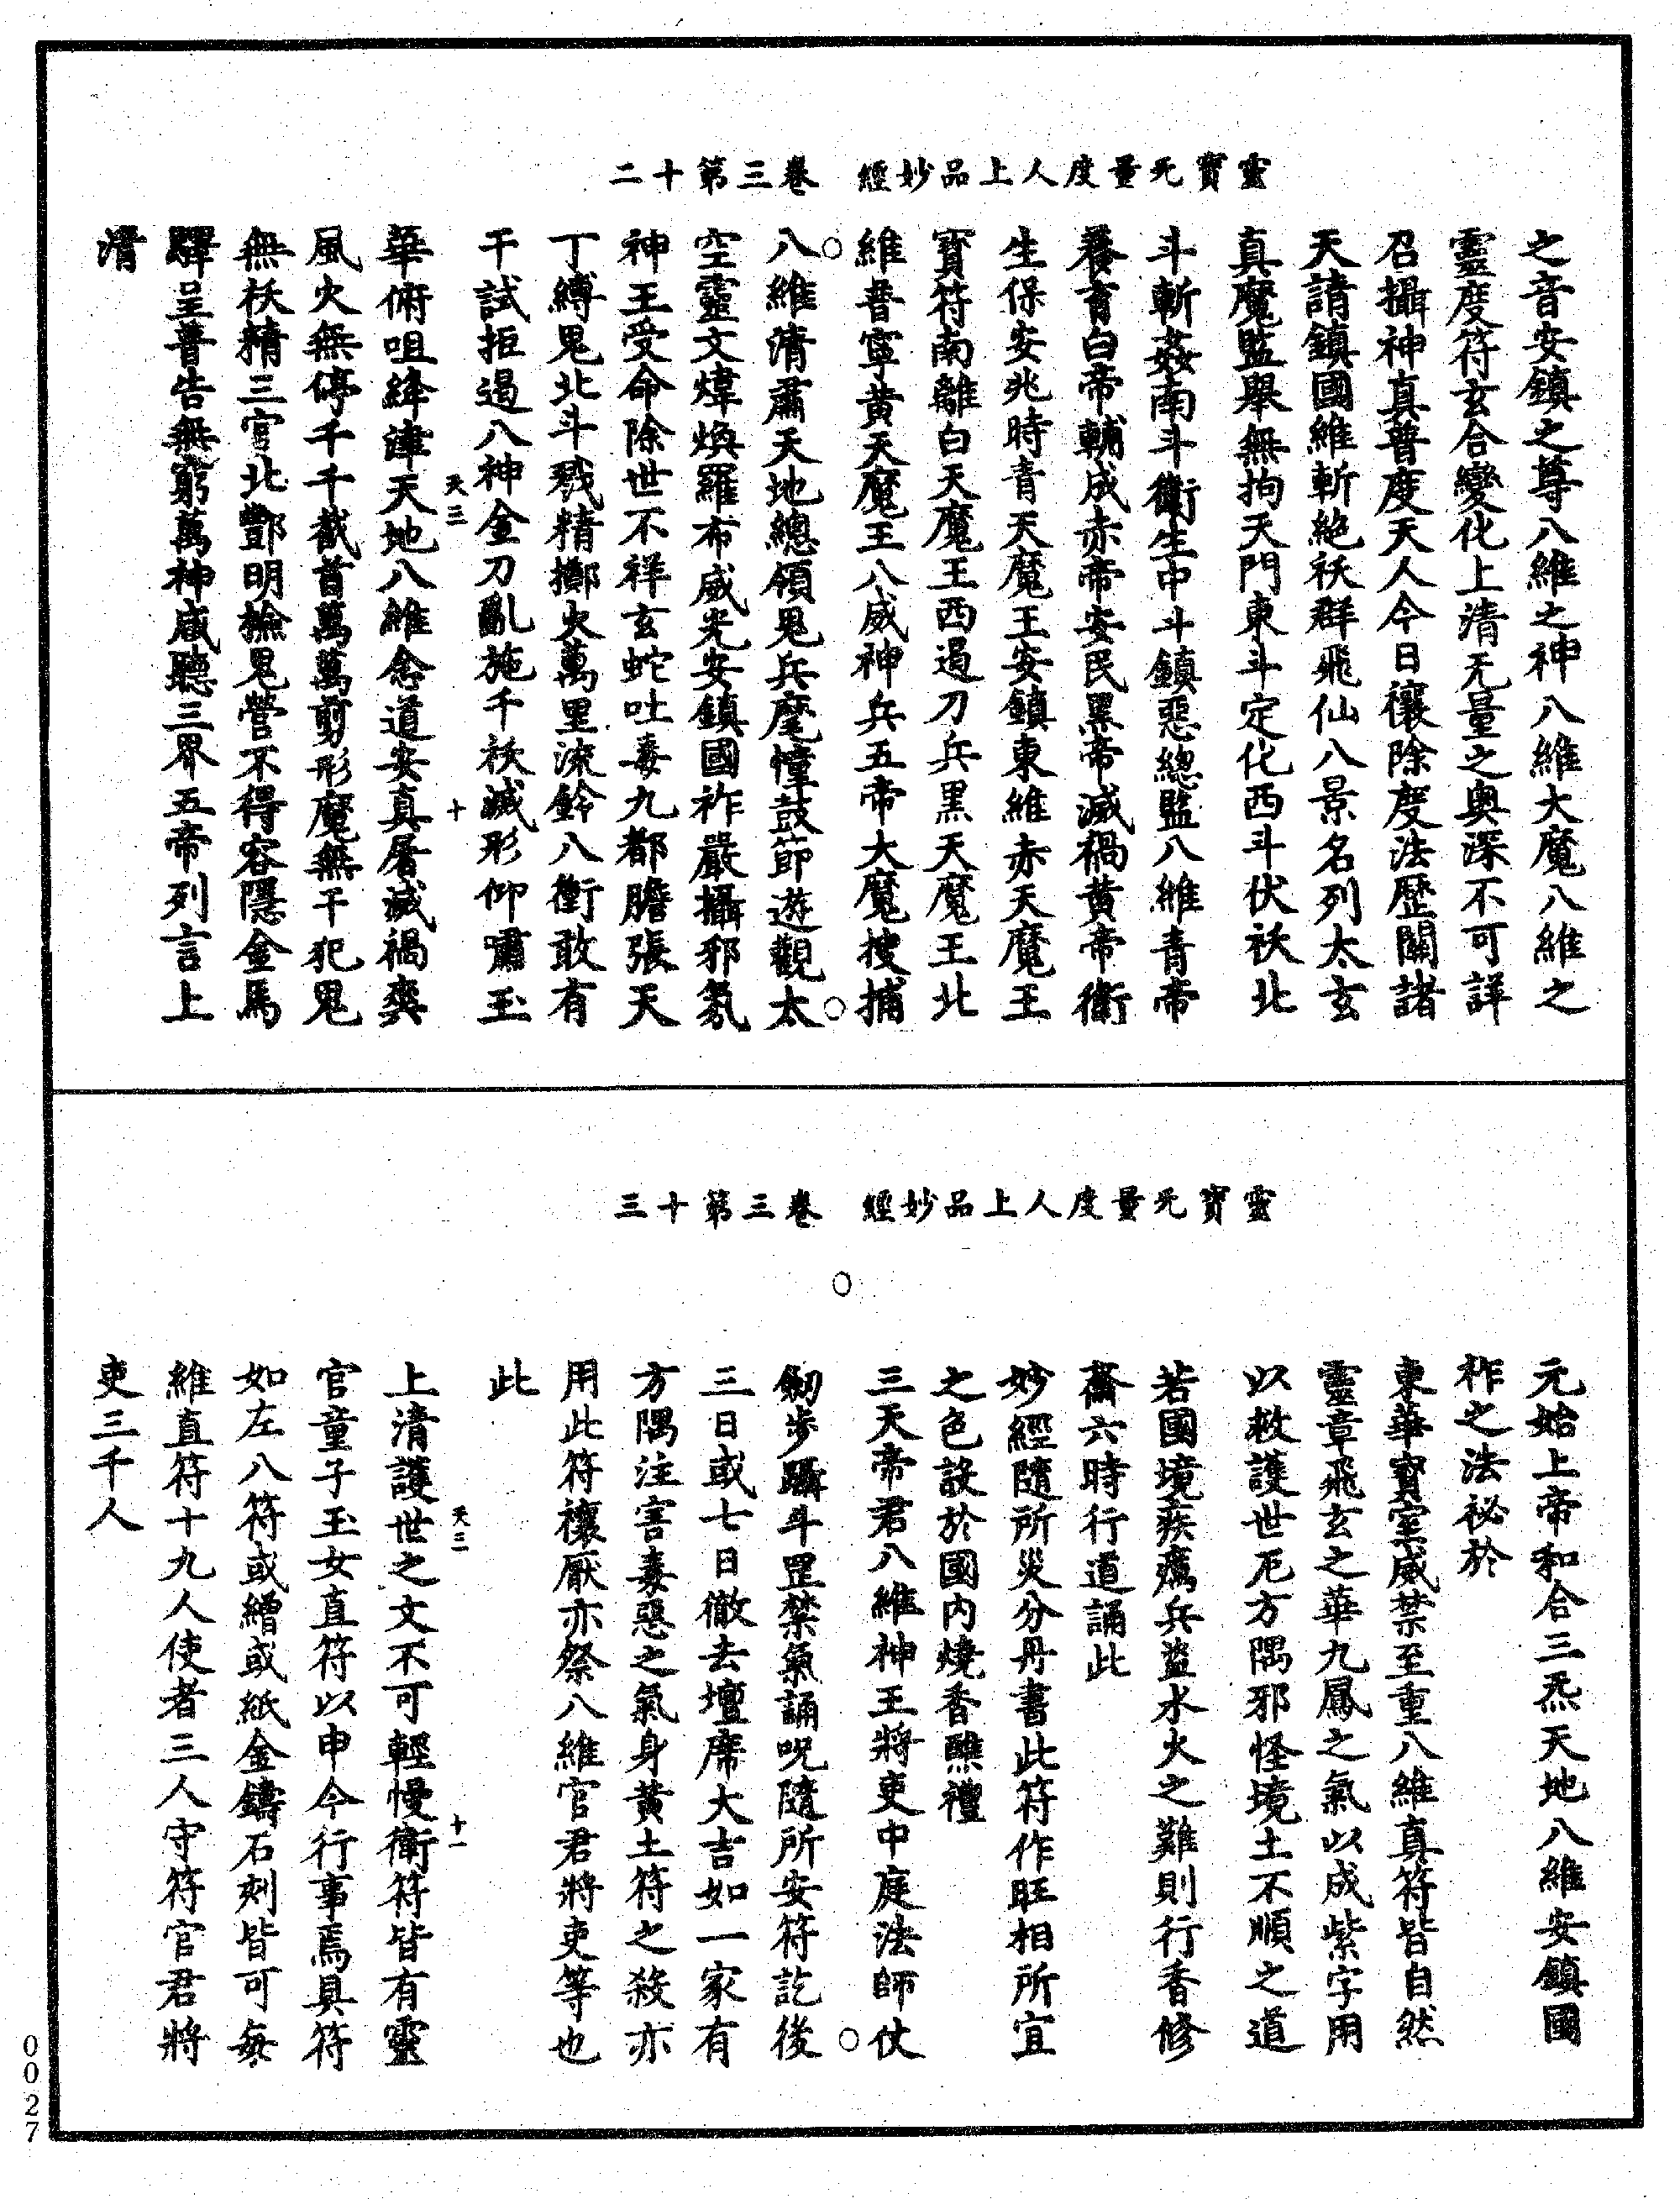 靈寶无量度人上品妙經　卷三第十二
之音安鎮之尊八維之神八維大魔八維之
靈度符玄合變化上清无量之奧深不可詳
召攝神真普度天人今日禳除度法歷關諸
天請鎮國維斬絕祅群飛仙八景名列太玄
真魔監舉無拘天門東斗定化西斗伏祅北
斗斬姦南斗衛生中斗鎮惡總監八維青帝
養育白帝輔成赤帝安民黑帝滅禍黃帝衛
生保安兆時青天魔王安鎮東維赤天魔王
寶符南離白天魔王西遏刀兵黑天魔王北
維普寧黃天魔王八威神兵五帝大魔搜捕
八維清肅天地總領鬼兵麾幢鼓節遊觀太
空靈文煒煥羅布威光安鎮國祚嚴攝邪氛
神王受命除世不祥玄蛇吐毒九都膽張天
丁縛鬼北斗戮精擲火萬里流鈴八衝敢有
干試拒遏八神金刀亂施千祅滅形仰嘯玉
華俯咀絳津天地八維念道安真屠滅禍奕
天三　十
風火無停千千截首萬萬剪形魔無干犯鬼
無祅精三官北酆明撿鬼營不得容隱金馬
驛呈普告無窮萬神咸聽三界五帝列言上
清
靈寶无量度人上品妙經　卷三第十三
元始上帝和合三炁天地八維安鎮國
祚之法祕於
東華寶室威禁至重八維真符皆自然
靈章飛玄之華九鳳之氣以成紫字用
以救護世厄方隅邪怪境土不順之道
若國境疾癘兵盜水火之難則行香修
齋六時行道誦此
妙經隨所災分丹書此符作旺相所宜
之色設於國內燒香醮禮
三天帝君八維神王將吏中庭法師仗
劒步躡斗罡禁氣誦呪隨所安符訖後
三日或七日徹去壇席大吉如一家有
方隅注害毒惡之氣身黃土符之殺亦
用此符禳厭亦祭八維官君將吏等也
此
上清護世之文不可輕慢衛符皆有靈
天三　十一
官童子玉女直符以申今行事焉具符
如左八符或繒或紙金鑄石刻皆可每
維直符十九人使者三人守符官君將
吏三千人
0027